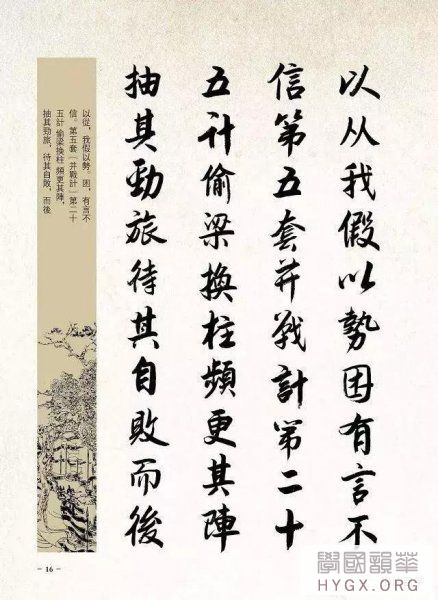 以从我假以勢困有言不
信第五套并戰計第二十
五计偷梁換柱頻更其陣
抽其勁旅待其自敗而後
以從，我假以勢。困，有言不
信。第五套〔并戰計〕第二十
五計 偷梁換柱 頻更其陣，
抽其勁旅，待其自敗，而後
- 16 -
華韻國學
HYGX.ORG